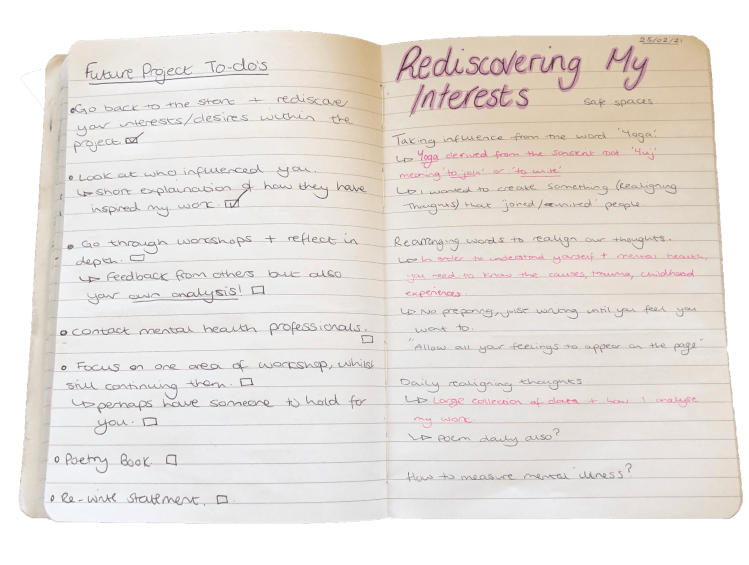 Future Project To-do's
•Go back to the start + rediscover
your interests/desires within the
project. ☑
• Look at who influenced you.
↳ Short explaination of how they have
inspired my work. ☑
• Go through workshops + reflect in
depth. ☐
↳ Feedback from others but also
your own analysis! ☐
• Contact mental health professionals.
☐
• Focus on one area of workshop, whilst
still continuing them. ☐
↳ perhaps have someone to hold for
you. ☐
• Poetry Book. ☐
• Re-write Statement. ☐
25/02/21
Rediscovering My
Interests
Safe spaces
Taking influence from the word 'Yoga'.
↳ Yoga derived from the sanscrit root 'Yuj'
meaning 'to join' or 'to unite'
↳ I wanted to create something (Realigning
Thoughts) that 'joined/united' people
Rearranging words to realign our thoughts.
↳ In order to understand yourself + mental health,
you need to know the causes, trauma, childhood
experiences.
↳ No preparing, just writing until you feel you
want to.
"Allow all your feelings to appear on the page"
Daily realigning thoughts
↳ Large collection of data + how I analyse
my work
↳ Poem daily also?
How to measure mental illness?